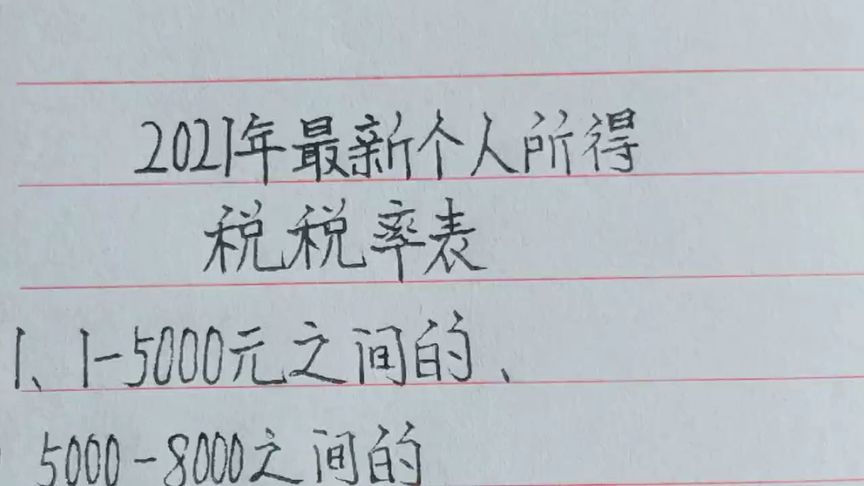 2021年最新个人所得
税税率表
1、1-5000元之间的、
5000-8000之间的